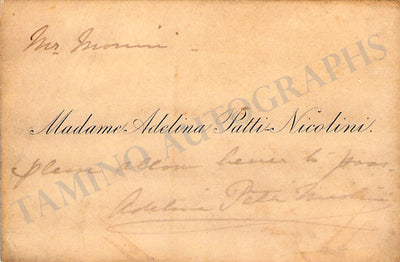 Mr
Madame Adelina Patti-Nicolini.
please allow bearer to pass
Adelina Patti Nicolini
TAMINO AUTOGRAPHS